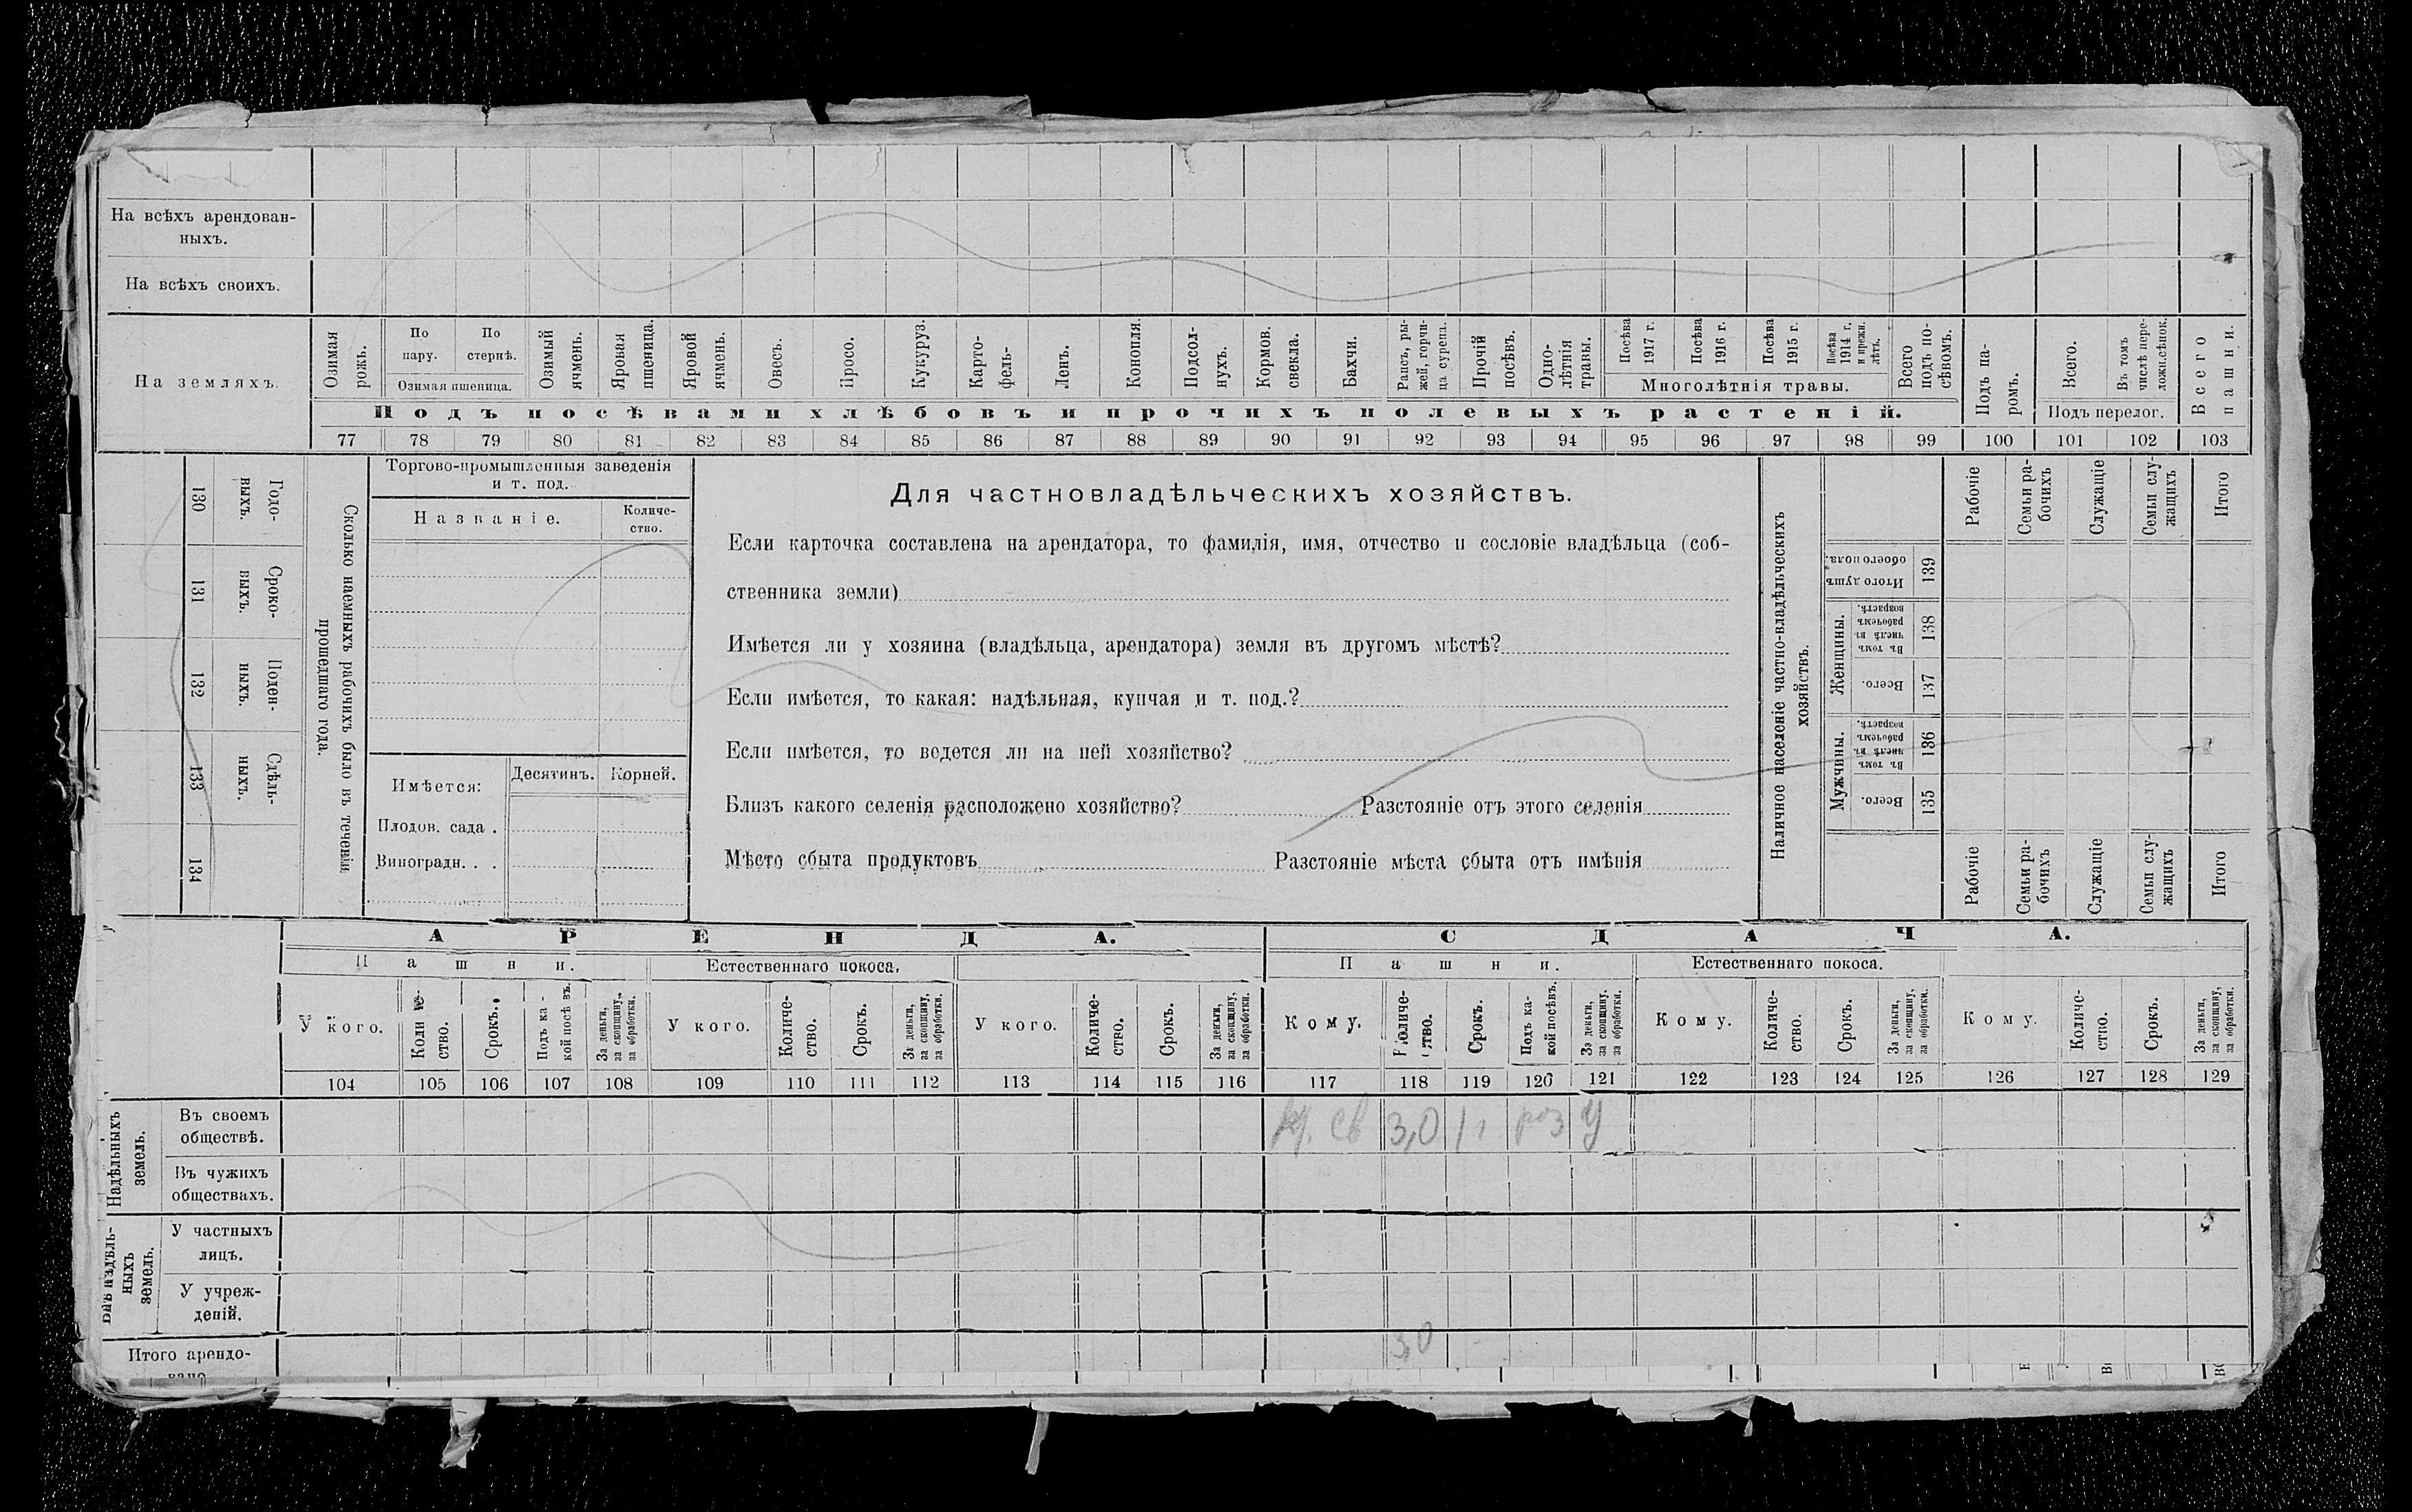 На всѣхъ арендован-
ныхъ.
На всѣхъ своихъ.
На земляхъ.
Озимая рожь.
По пару.
По стернѣ.
Озимая пшеница.
Озимый ячмень.
Яровая пшеница.
Яровой ячмень.
Овесъ.
Просо.
Кукуруз.
Карто-
фель-
Ленъ.
Конопля.
Подсол-
нухъ.
Кормов.
свекла.
Бахчи.
Рапсъ, ры-
жей, горчи-
ца сурепа.
Прочій
посѣвъ.
Одно-
лѣтнія
травы.
Посѣва
1917 г.
Посѣва
1916 г.
Посѣва
1915 г.
Посѣва
1914 г.
и прежн.
лѣтъ.
Многолѣтнія травы.
Всего
подъ по-
сѣвомъ.
Подъ па-
ромъ.
Всего.
Въ томъ
числѣ пере-
ложн.сѣнок.
Подъ перелог.
Всего
пашни.
Подъ посѣвами хлѣбовъ и прочихъ полевыхъ растеній.
77 78 79 80 81 82 83 84 85 86 87 88 89 90 91 92 93 94 95 96 97 98 99 100 101 102 103
130 Годо-
выхъ.
131 Сроко-
выхъ.
132 Поден-
ныхъ.
133 Сдѣль-
ныхъ.
134
Сколько наемныхъ рабочихъ было въ теченіи
прошедшаго года.
Торгово-промышленныя заведенія
и т. под.
Названіе.
Количе-
ство.
Имѣется:
Десятинъ. Корней.
Плодов. сада .
Виноградн. . .
Для частновладѣльческихъ хозяйствъ.
Если карточка составлена на арендатора, то фамилія, имя, отчество и сословіе владѣльца (соб-
ственника земли)
Имѣется ли у хозяина (владѣльца, арендатора) земля въ другомъ мѣстѣ?
Если имѣется, то какая: надѣльная, купчая и т. под.?
Если имѣется, то ведется ли на ней хозяйство?
Близъ какого селенія расположено хозяйство? Разстояніе отъ этого селенія
Мѣсто сбыта продуктовъ Разстояніе мѣста сбыта отъ имѣнія
Наличное населеніе частно-владѣльческихъ
хозяйствъ.
Рабочіе
Семьи ра-
бочихъ
Служащіе
Семьи слу-
жащихъ
Итого
Итого душъ
обоего пола.
139
Женщины.
Въ томъ
числѣ въ
рабочемъ
возрастѣ.
138
Всего.
137
Мужчины.
Въ томъ
числѣ въ
рабочемъ
возрастѣ.
136
Всего.
135
Рабочіе
Семьи ра-
бочихъ
Служащіе
Семьи слу-
жащихъ
Итого
АРЕНДА.
СДАЧА.
Пашни.
Естественнаго покоса.
Пашни.
Естественнаго покоса.
У кого.
Количе-
ство.
Срокъ.
Подъ ка-
кой посѣвъ.
За деньги,
за скопщину,
за обработки.
У кого.
Количе-
ство.
Срокъ.
За деньги,
за скопщину,
за обработки.
У кого.
Количе-
ство.
Срокъ.
За деньги,
за скопщину,
за обработки.
Кому.
Количе-
ство.
Срокъ.
Подъ ка-
кой посѣвъ.
За деньги,
за скопщину,
за обработки.
Кому.
Количе-
ство.
Срокъ.
За деньги,
за скопщину,
за обработки.
Кому.
Количе-
ство.
Срокъ.
За деньги,
за скопщину,
за обработки.
104 105 106 107 108 109 110 111 112 113 114 115 116 117 118 119 120 121 122 123 124 125 126 127 128 129
Надѣльныхъ
земель.
Въ своемъ
обществѣ.
3,0 1 г
Въ чужихъ
обществахъ.
Внѣнадѣль-
ныхъ
земель.
У частныхъ
лицъ.
У учреж-
деній.
3,0
Итого арендо-
вано